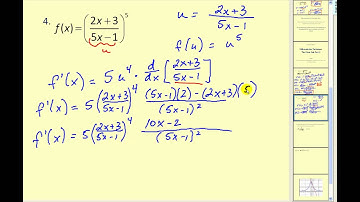 4. f(x) = ((2x+3)/(5x-1))^5
u
u = (2x+3)/(5x-1)
f(u) = u^5
f'(x) = 5u^4 · d/dx [(2x+3)/(5x-1)]
f'(x) = 5((2x+3)/(5x-1))^4 ((5x-1)(2) - (2x+3)(5))/(5x-1)^2
f'(x) = 5((2x+3)/(5x-1))^4 (10x-2)/(5x-1)^2